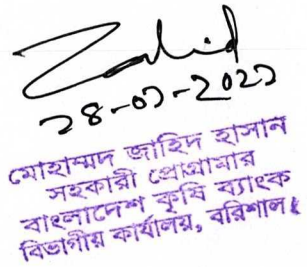 Zahid
২৪-০১-২০২১
মোহাম্মদ জাহিদ হাসান
সহকারী প্রোগ্রামার
বাংলাদেশ কৃষি ব্যাংক
বিভাগীয় কার্যালয়, বরিশাল।